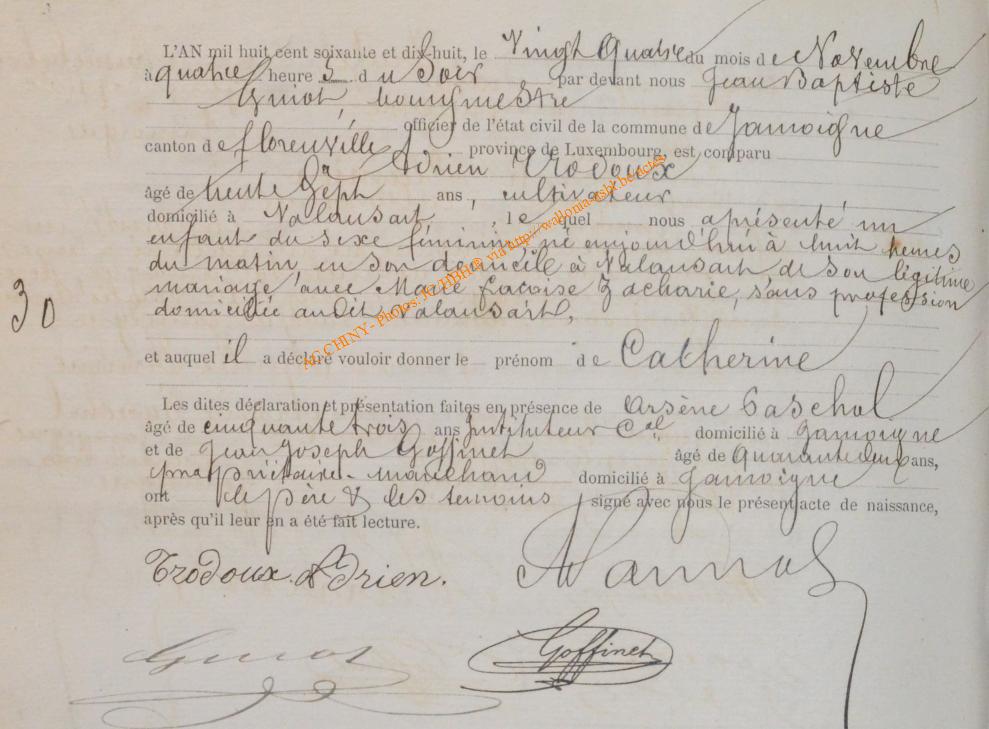 L'AN mil huit cent soixante et dix-huit, le Vingt Quatre du mois de Novembre
à quatre heures du Soir par devant nous Jean Baptiste
Guiot, bourgmestre
officier de l'état civil de la commune de Jamoigne
canton de florenville province de Luxembourg, est comparu
Adrien Trodoux
âgé de trente Sept ans, cultivateur
domicilié à Valansart, lequel nous a présenté un
enfant du sexe féminin, né aujourd'hui à huit heures
du matin, en son domicile à Valansart de son légitime
mariage avec Marie Zacharie, sans profession
domiciliée audit Valansart,
30
et auquel il a déclaré vouloir donner le prénom de Catherine
Les dites déclaration et présentation faites en présence de Arsène
âgé de cinquante trois ans Instituteur Cal domicilié à Jamoigne
et de Jean Joseph Goffinet âgé de Quarante deux ans,
propriétaire-marchand domicilié à Jamoigne
ont le père & les temoins signé avec nous le présent acte de naissance,
après qu'il leur en a été fait lecture.
Trodoux Adrien.
Guiot
Goffinet
AG CHINY - Photos: via http://wallonia-asbl.be/actes